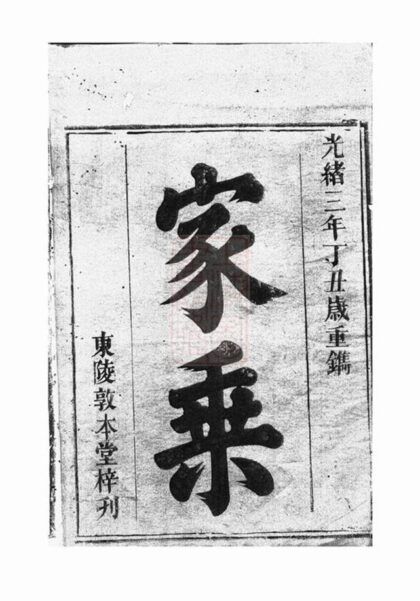 光緒三年丁丑歲重鐫
家乗
東陵敦本堂梓刋